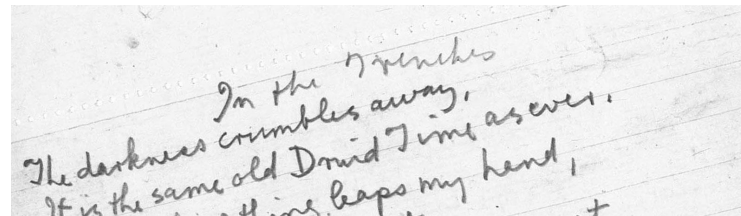 In the Trenches
The darkness crumbles away,
It is the same old Druid Time as ever.
thing leaps my hand,